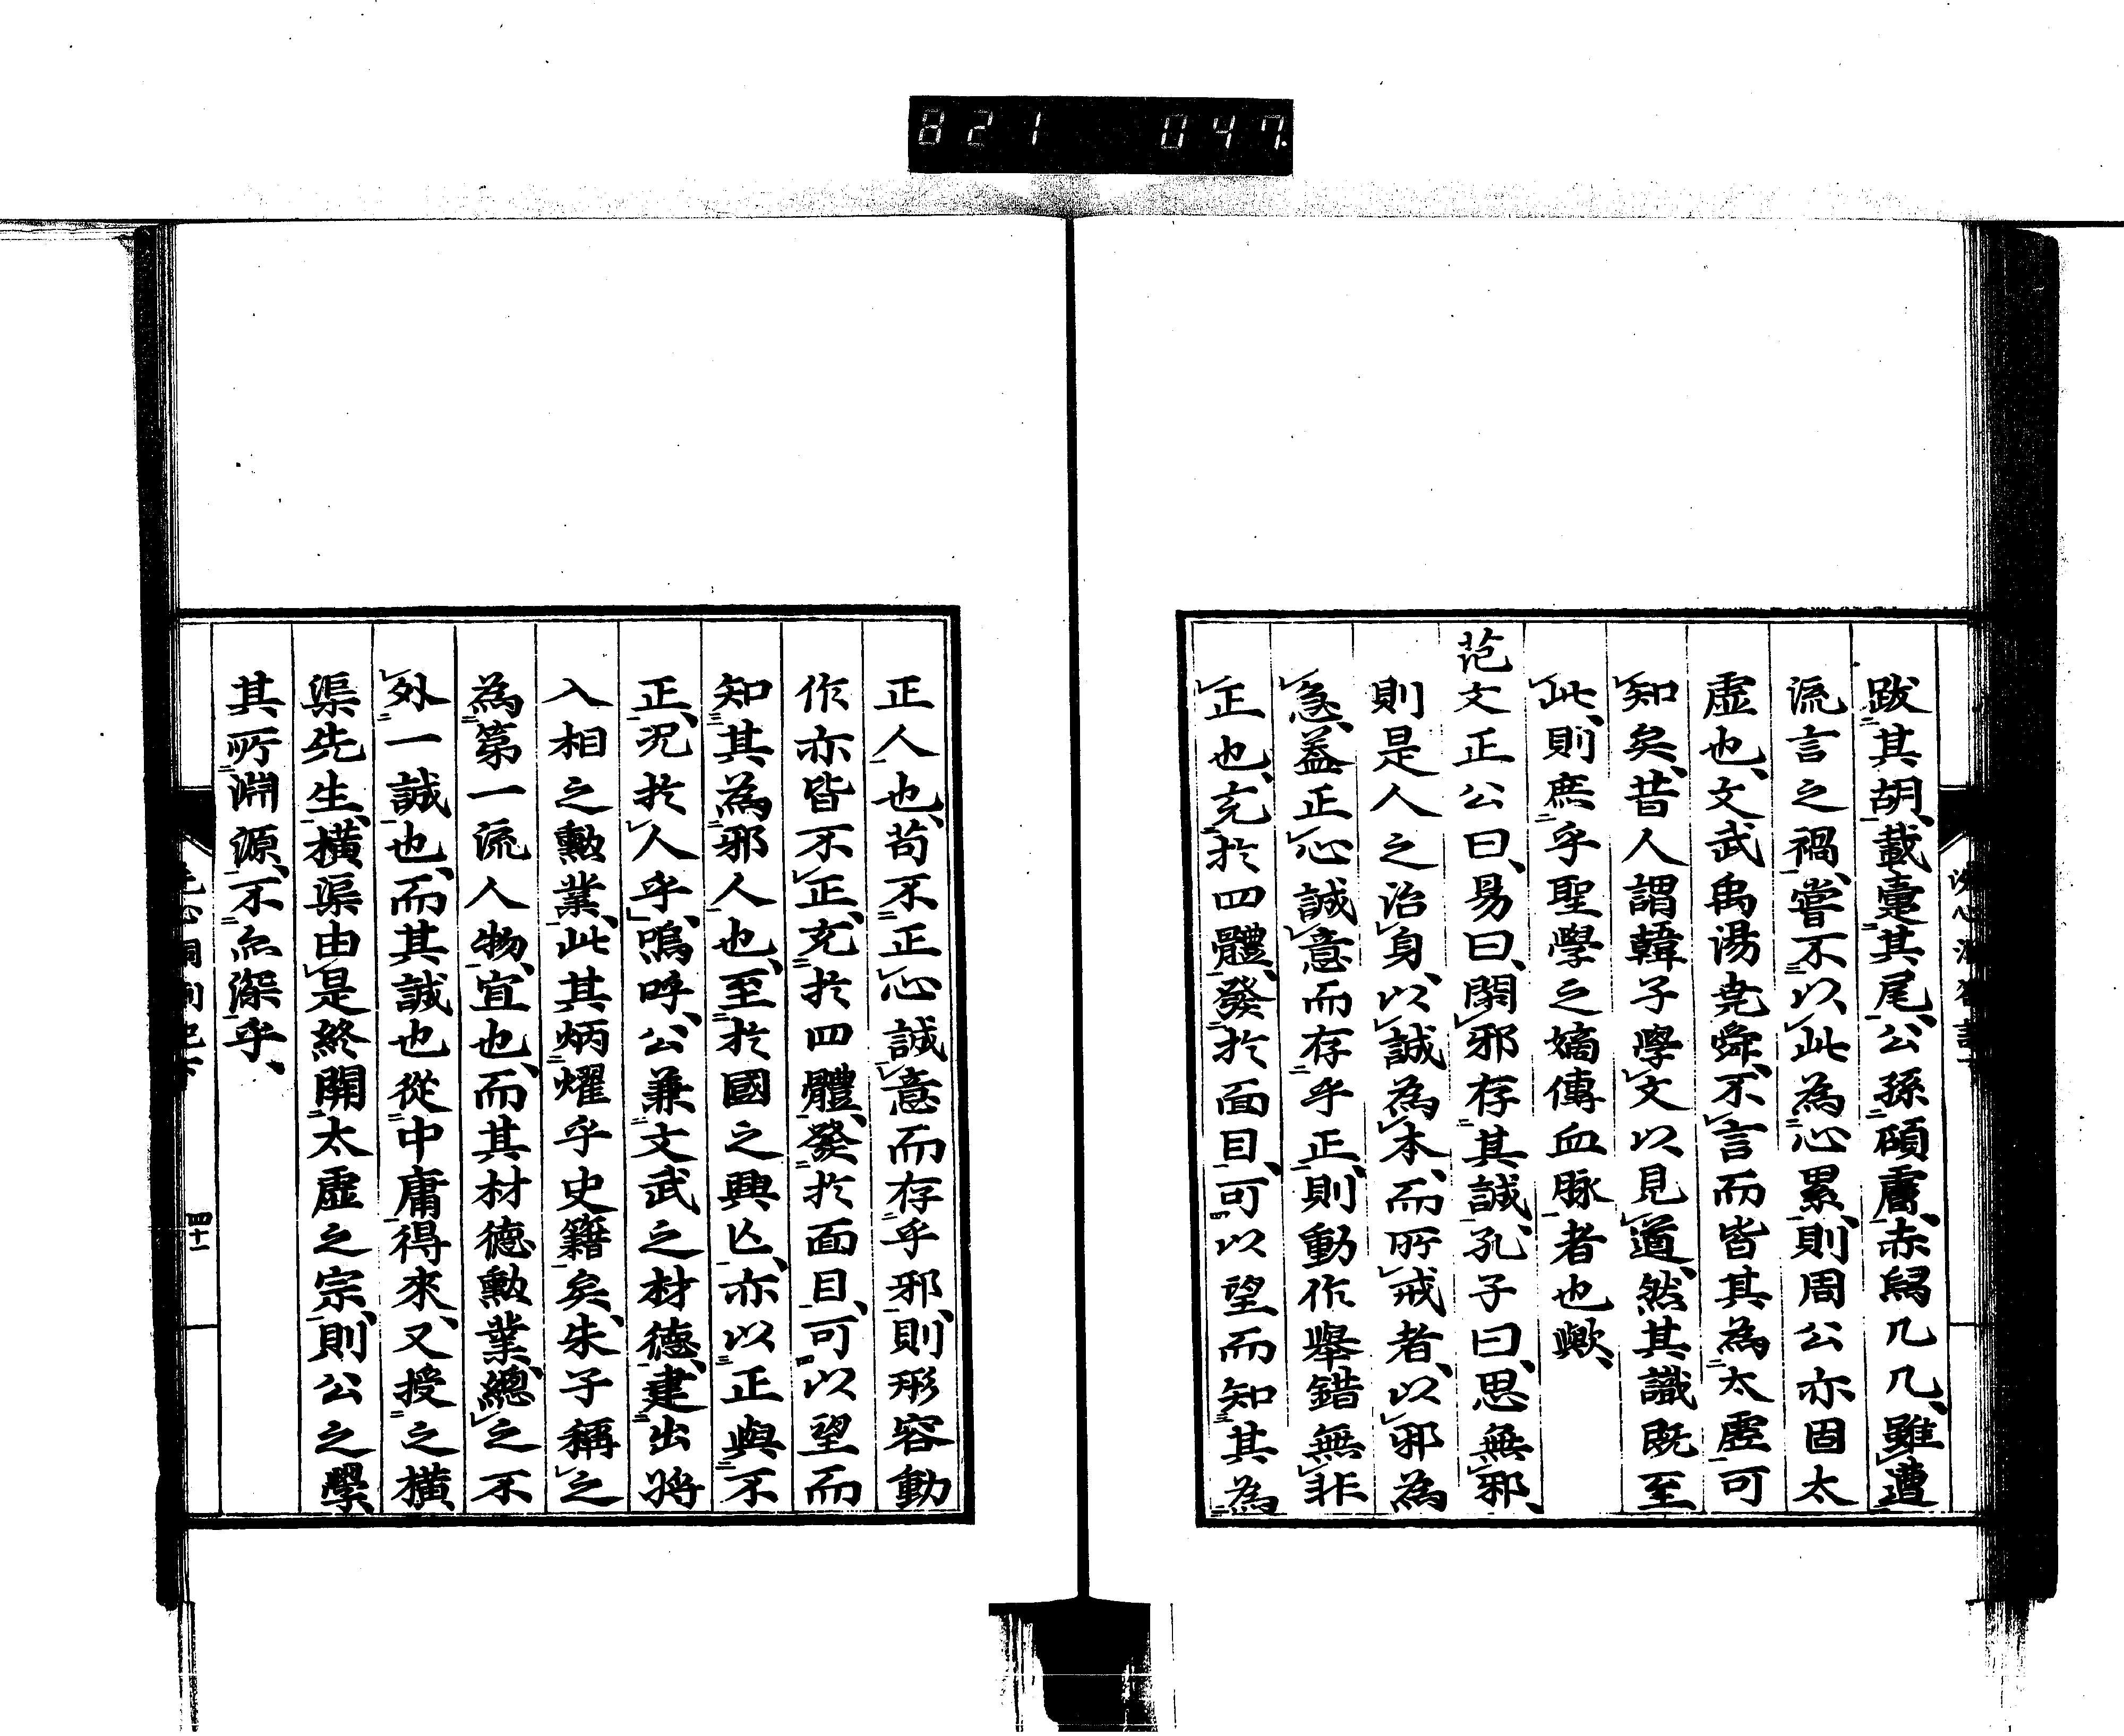 821 047
跋其胡、載疐其尾、公孫碩膚、赤舄几几、雖遭
流言之禍、嘗不以此為心累、則周公亦固太
虛也、文武禹湯堯舜、不言而皆其為太虛可
知矣、昔人謂韓子學文以見道、然其識既至
此、則庶乎聖學之嫡傳血脉者也歟、
范文正公曰、易曰、閑邪存其誠、孔子曰、思無邪、
則是人之治身、以誠為本、而所戒者、以邪為
急、葢正心誠意而存乎正、則動作舉錯無非
正也、充於四體、發於面目、可以望而知其為
正人也、苟不正心誠意而存乎邪、則形容動
作亦皆不正、充於四體、發於面目、可以望而
知其為邪人也、至於國之興亾、亦以正與不
正、况於人乎、嗚呼、公兼文武之材德、建出將
入相之勳業、此其炳燿乎史籍矣、朱子稱之
為第一流人物、宜也、而其材德勳業、總之不
外一誠也、而其誠也從中庸得來、又授之橫
渠先生、橫渠由是終開太虛之宗、則公之學
其所淵源、不亦深乎、
四十一